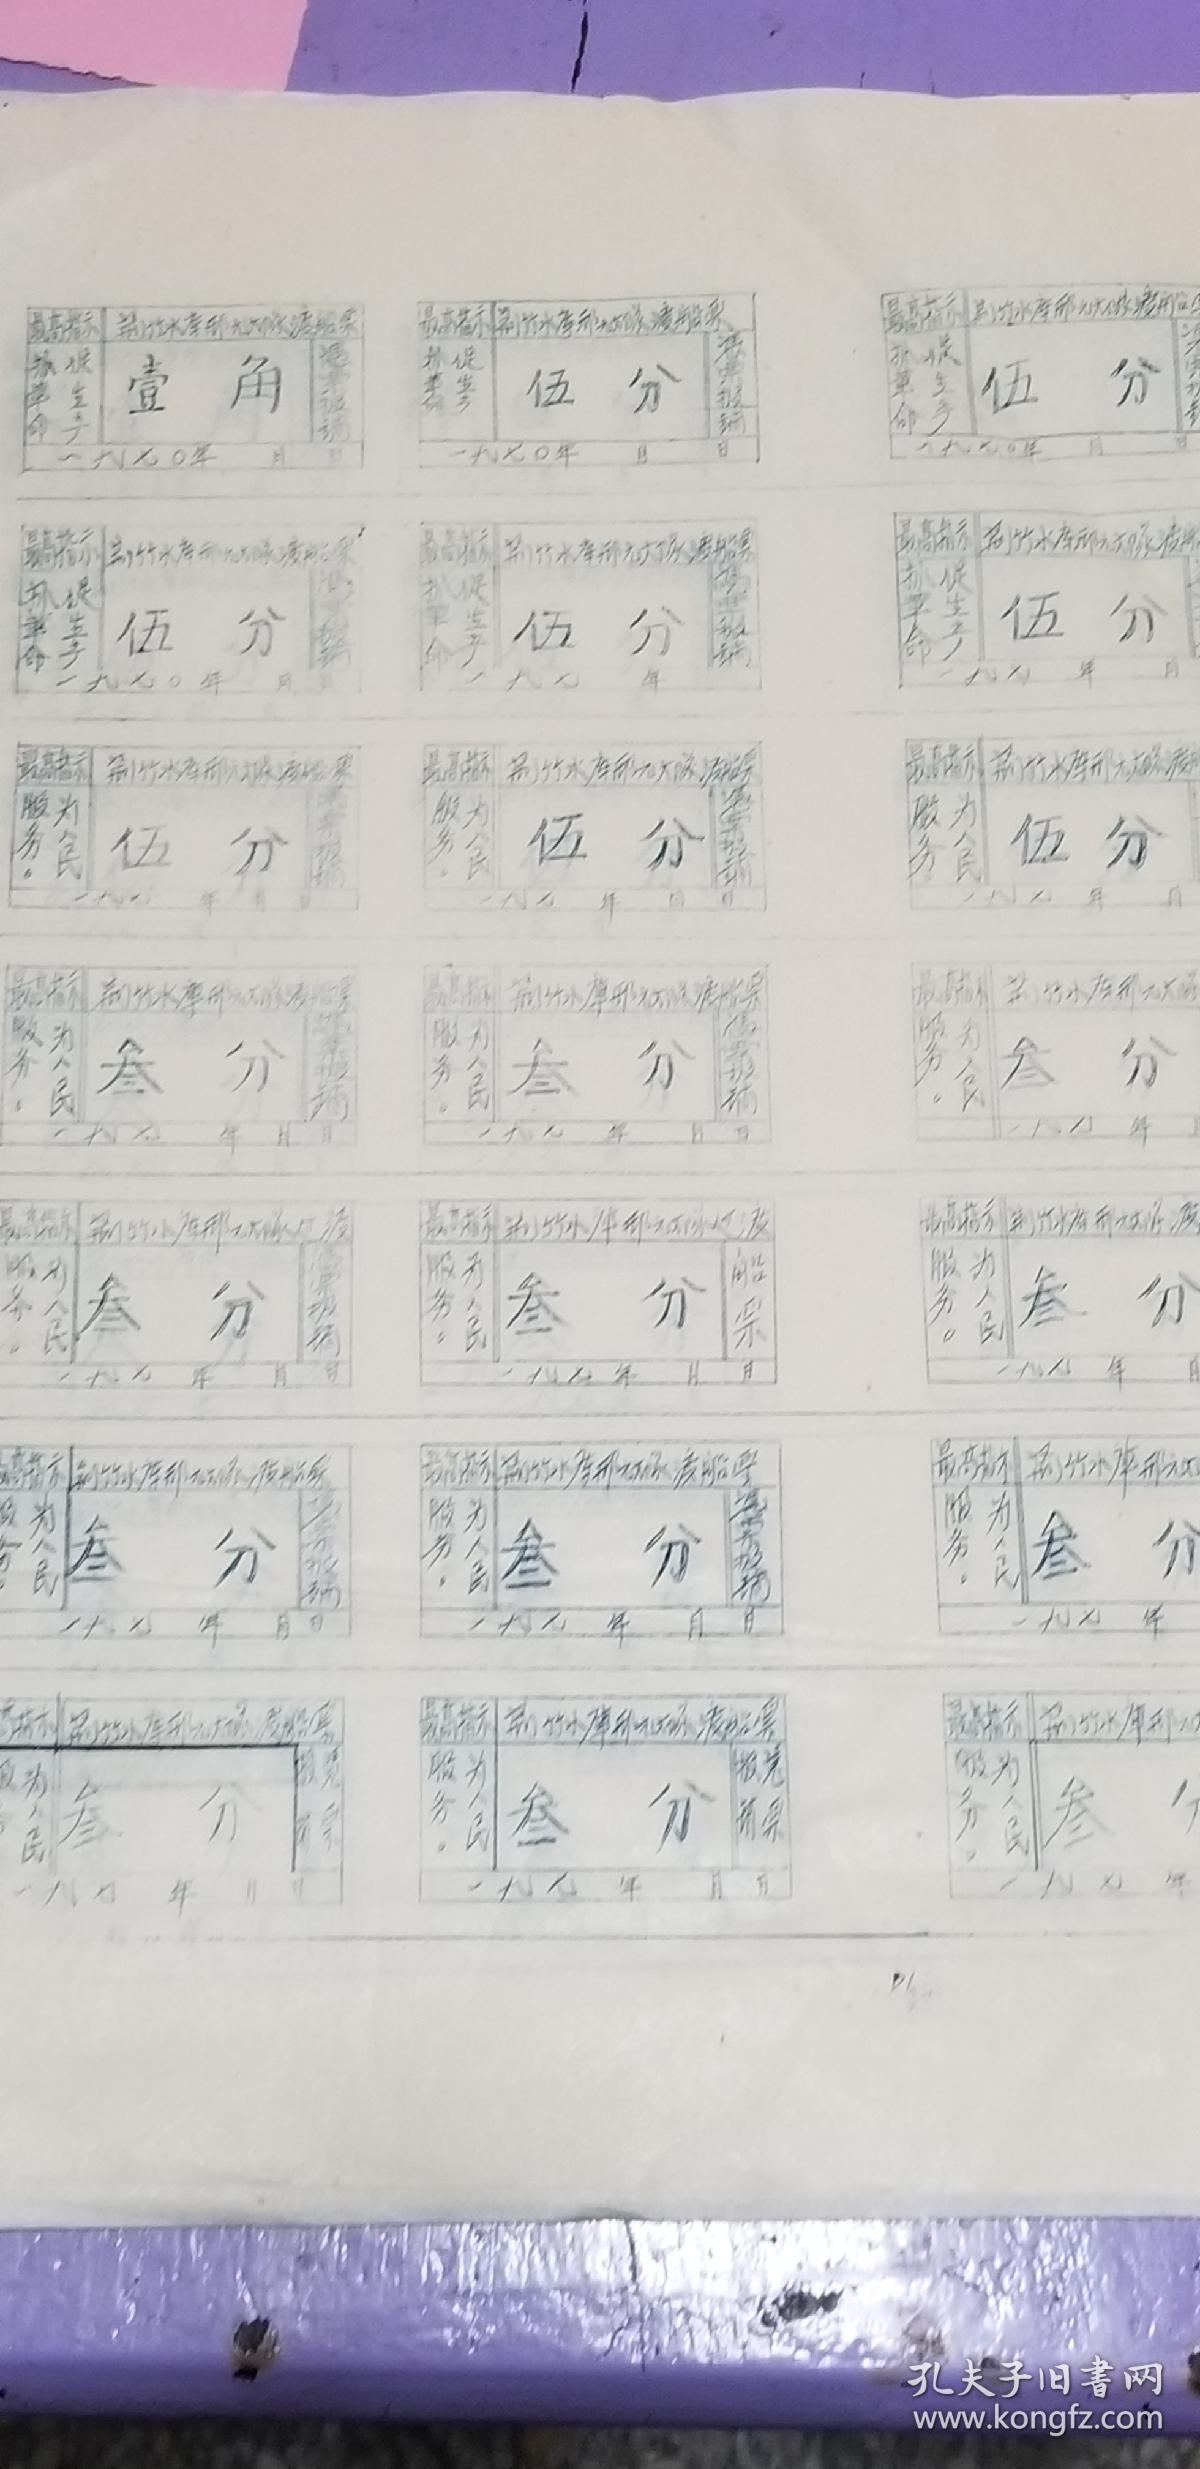 最高指示 荆竹水库邢大队渡船票
抓革命 促生产 壹角 凭票报销
一九七〇年 月 日
最高指示 荆竹水库邢大队渡船票
抓革命 促生产 伍分 凭票报销
一九七〇年 月 日
最高指示 荆竹水库邢大队渡船
抓革命 促生产 伍分
一九七〇年 月
最高指示 荆竹水库邢大队渡船票
抓革命 促生产 伍分
一九七〇年 月 日
最高指示 荆竹水库邢大队渡船票
抓革命 促生产 伍分 凭票报销
一九七 年
最高指示 荆竹水库邢大队渡船
抓革命 促生产 伍分
一九七 年 月
最高指示 荆竹水库邢大队渡船票
为人民服务。 伍分 凭票报销
一九七 年 月 日
最高指示 荆竹水库邢大队渡船票
为人民服务。 伍分 凭票报销
一九七 年 月 日
最高指示 荆竹水库邢大队渡船
为人民服务。 伍分
一九七 年 月
最高指示 荆竹水库邢大队渡船票
为人民服务。 叁分 凭票报销
一九七 年 月 日
最高指示 荆竹水库邢大队渡船票
为人民服务。 叁分 凭票报销
一九七 年 月 日
最高指示 荆竹水库邢大队
为人民服务。 叁分
一九七 年
最高指示 荆竹水库邢大队 渡
为人民服务。 叁分 凭票报销
一九七 年 月 日
最高指示 荆竹水库邢大队 渡
为人民服务。 叁分 船票
一九七 年 月 日
最高指示 荆竹水库邢大队渡
为人民服务。 叁分
一九七 年 月
最高指示 荆竹水库邢大队渡船票
为人民服务。 叁分 凭票报销
一九七 年 月 日
最高指示 荆竹水库邢大队渡船票
为人民服务。 叁分 凭票报销
一九七 年 月 日
最高指示 荆竹水库邢大
为人民服务。 叁分
一九七 年
高指示 荆竹水库邢大队渡船票
为人民服 叁分 凭票报销
一九七 年 月 日
最高指示 荆竹水库邢大队渡船票
为人民服务。 叁分 凭票报销
一九七 年 月 日
最高指示 荆竹水库邢大
为人民服务。 叁分
一九七 年
孔夫子旧书网
www.kongfz.com